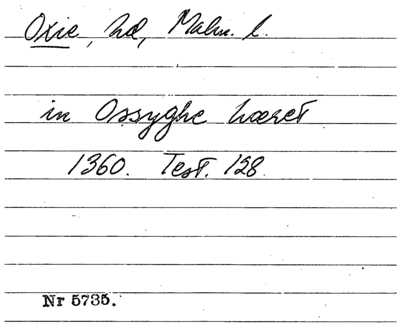 Oxie, hd, Malm. l.
in Ossyghe hæret
1360. Test. 128
Nr 5735.